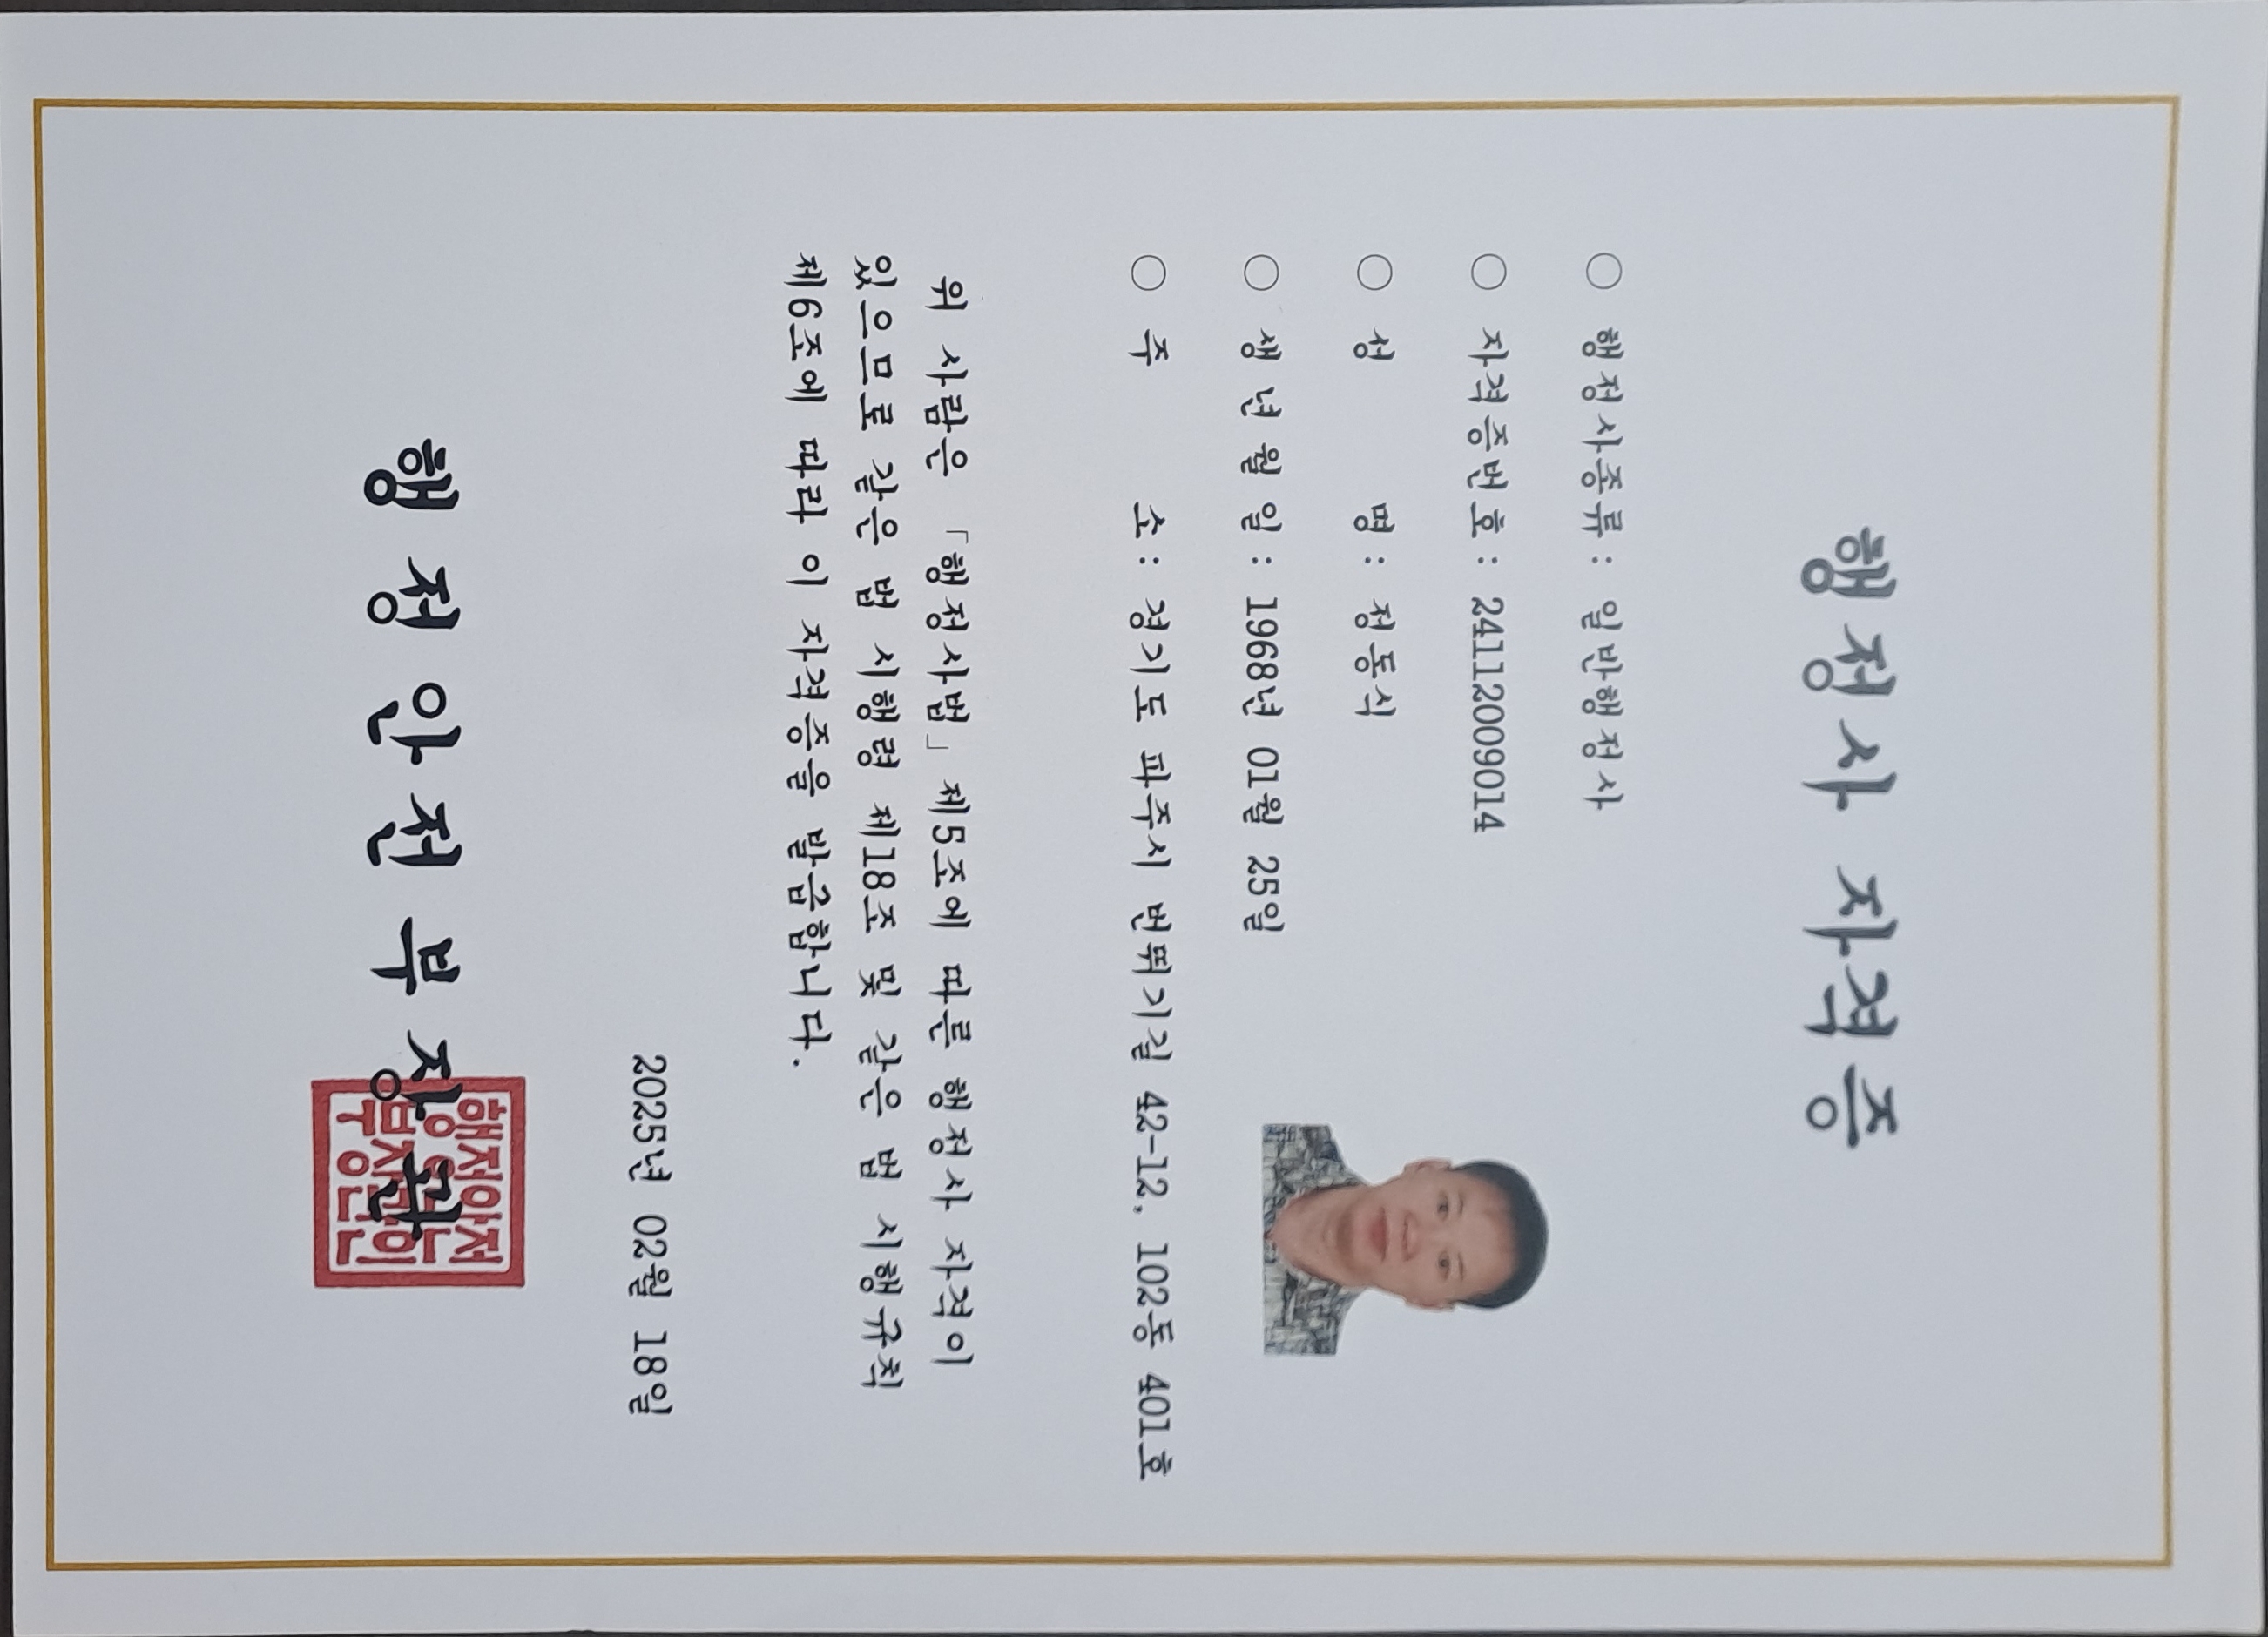 행정사 자격증
○ 행정사종류: 일반행정사
○ 자격증번호: 24112009014
○ 성 명: 정동식
○ 생 년 월 일: 1968년 01월 25일
○ 주 소: 경기도 파주시 번뛰기길 42-12, 102동 401호
위 사람은 「행정사법」 제5조에 따른 행정사 자격이
있으므로 같은 법 시행령 제18조 및 같은 법 시행규칙
제6조에 따라 이 자격증을 발급합니다.
2025년 02월 18일
행정안전부장관
행정안전
부장관의
인